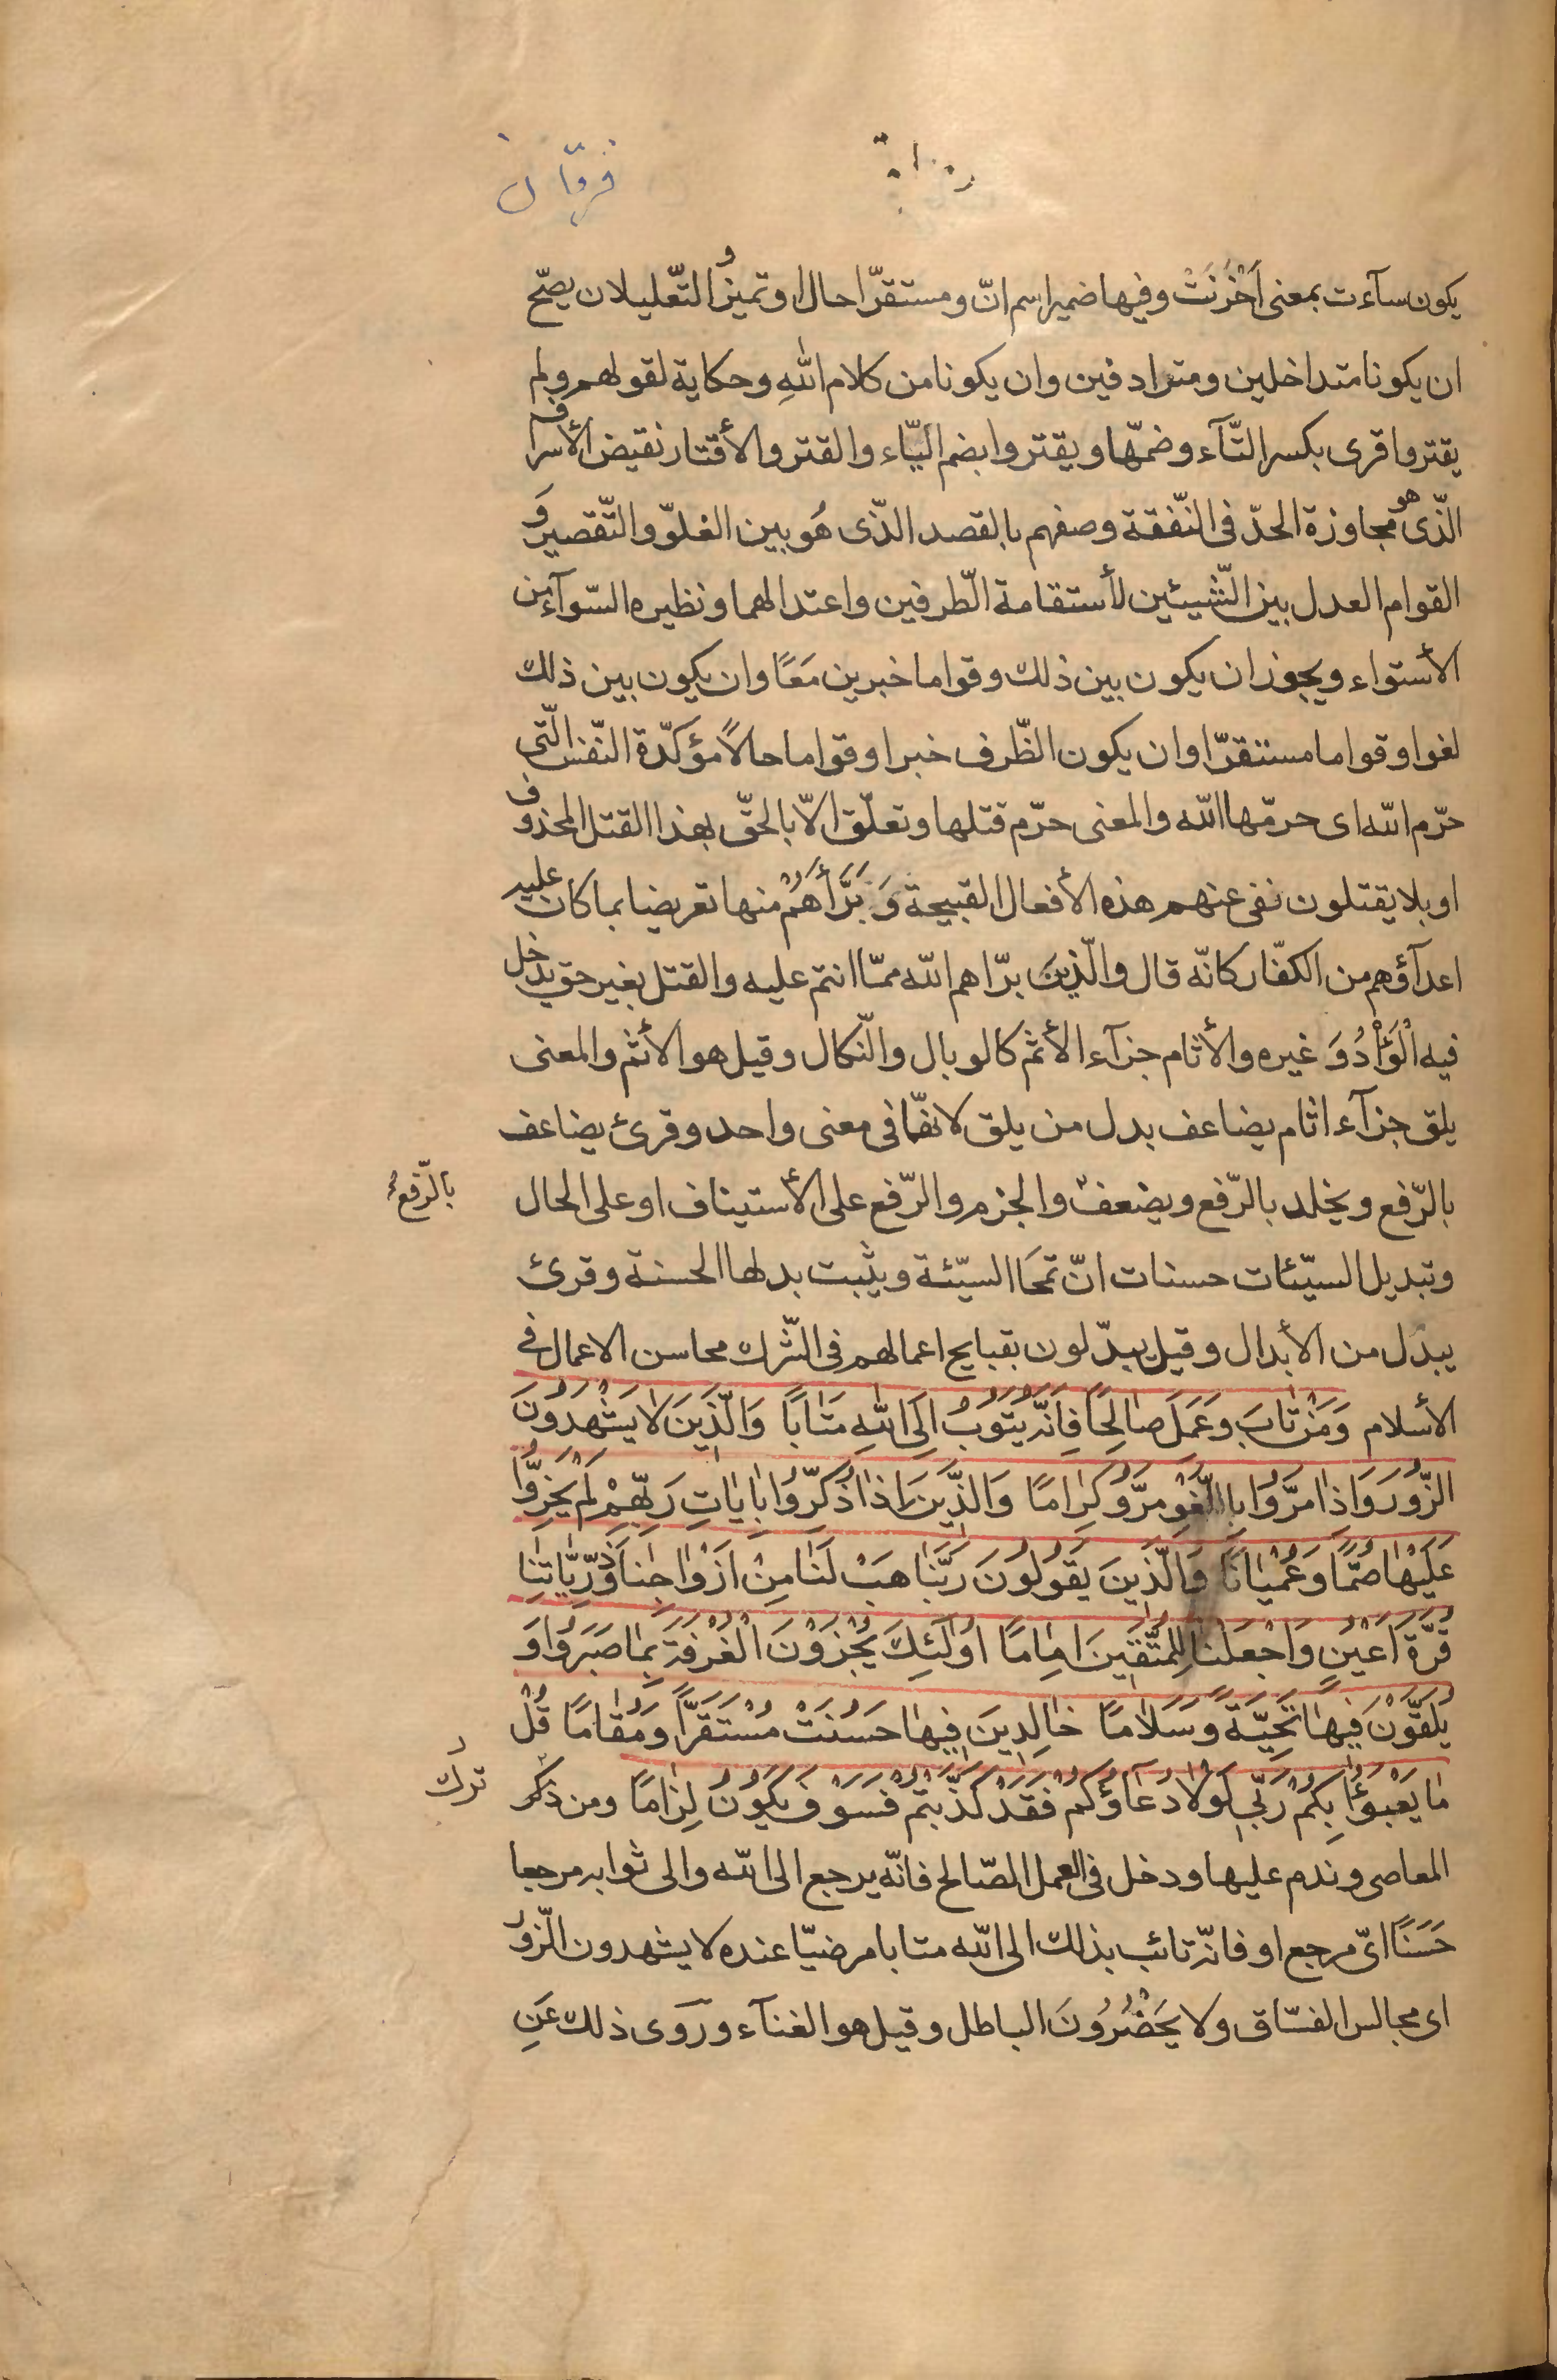 فرقان
يكون سآءت بمعنى اَحْزَنَتْ وفيها ضمير اسم انّ ومستقرّا حال او تميز و التّعليلان يصحّ
ان يكونا متداخلين ومترادفين وان يكونا من كلام اللّٰهِ وحكاية لقولهم ولم
يقتروا قرى بكسر التّآء وضمّها ويقتروا بضم اليّاء والقتر والأقتار نقيض الأسراف
الّذى هو مجاوزة الحدّ فى النّفقة وصفهم بالقصد الذّى هُو بين الغلوّ والتّقصير وَ
القوام العدل بين الشّيئين لأستقامة الّطرفين واعتدالهما ونظيره السّوآء من
الأستواء ويجوز ان يكون بين ذلك وقواما خبرين مَعًا وان يكون بين ذلك
لغوا وقواما مستقرّا وان يكون الظّرف خبرا وقواما حالاً مؤكدّة النّفس الّتى
حرّم اللّه اى حرمّها اللّه والمعنى حرّم قتلها وتعلّق الاّ بالحقّ بهذا القتل المحذوف
او بلا يقتلون نفى عنهم هذه الأفعال القبيحة وَ بَرَّأهُمْ منها تعريضا بما كان عليه
اعدآؤهم من الكفّار كانّه قال والّذينَ برّاهم اللّه ممّا انتم عليه والقتل بغير حق يدخل
فيه الْوَأْدُ وَ غيره والأثام جزآء الأثم كالوبال والنّكال وقيل هو الأثم والمعنى
يلق جزآء اثام يضاعف بدل من يلق لانهّا فى معنى واحد وقرئ يضاعف
بالرّفع ويخلد بالرّفع ويضعف والجزم والرّفع على الأستيناف او على الحال
بالرّفع
وتبديل السيّئات حسنات انّ تمحَا السيّئة ويثبت بدلها الحسنة وقرئ
يبدل من الأبدال وقيل يبدّلون بقبايح اعمالهم فى الشّرك محاسن الاعمال فى
الأسلام وَمَنْ تابَ وَعَمَلَ صالِحًا فَاِنَّهُ يَتُوبُ اِلَى اللّٰهِ مَتابًا وَالَّذِينَ لا يَشْهَدُونَ
الزُّورَ وَاِذا مَرُّوا بِاللَّغْوِ مَرُّو كِرامًا وَالَّذِينَ اِذا ذُكِرّوُا بِاياتِ رَبِّهِمْ لَمْ يَخِرُّوا
عَلَيْها صُمًّا وَعُمْيانًا وَالَّذِينَ يَقُولُونَ رَبَّنا هَبْ لَنا مِنْ اَزْواجِنا وَذُرِّيّاتِنا
قُرَّةَ اَعْيُنٍ وَاجْعَلْنا لِلْمُتَّقِينَ اِمامًا اُولٰئِكَ يُجْزَوْنَ الْغُرْفَةَ بِما صَبَرُوا وَ
يُلَقَّوْنَ فِيها تَحِيَّةً وَسَلامًا خالِدِينَ فِيها حَسُنَتْ مُسْتَقَرًّا وَمُقامًا قُلْ
ما يَعْبَؤُا بِكُمْ رَبِّى لَوْلا دُعآؤُكُمْ فَقَدْ كَذَّبْتُمْ فَسَوْفَ يَكُونُ لِزامًا ومن ذكر
ترك
المعاصى وندم عليها ودخل فى العمل الصّالح فانّه يرجع الى اللّه والى ثوابه مرجعا
حَسَنًا اىّ مرجع او فانّه تائب بذلك الى اللّه متابا مرضيّا عنده لا يشهدون الزّور
اى مجالس الفسّاق ولا يَحْضُرُونَ الباطل وقيل هو الغنآء وروى ذلك عَنِ